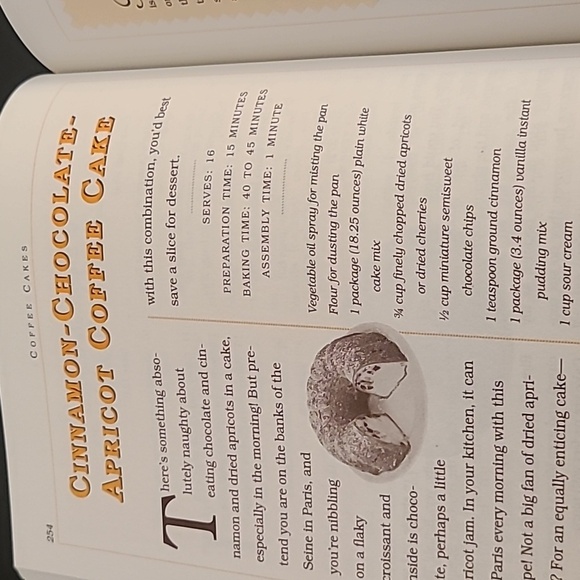 254
COFFEE CAKES
CINNAMON-CHOCOLATE-
APRICOT COFFEE CAKE
There's something abso-
lutely naughty about
eating chocolate and cin-
namon and dried apricots in a cake,
especially in the morning! But pre-
tend you are on the banks of the
Seine in Paris, and
you're nibbling
on a flaky
croissant and
inside is choco-
te, perhaps a little
ricot jam. In your kitchen, it can
Paris every morning with this
pe! Not a big fan of dried apri-
? For an equally enticing cake—
with this combination, you'd best
save a slice for dessert.
SERVES: 16
PREPARATION TIME: 15 MINUTES
BAKING TIME: 40 TO 45 MINUTES
ASSEMBLY TIME: 1 MINUTE
Vegetable oil spray for misting the pan
Flour for dusting the pan
1 package (18.25 ounces) plain white
cake mix
¾ cup finely chopped dried apricots
or dried cherries
½ cup miniature semisweet
chocolate chips
1 teaspoon ground cinnamon
1 package (3.4 ounces) vanilla instant
pudding mix
1 cup sour cream